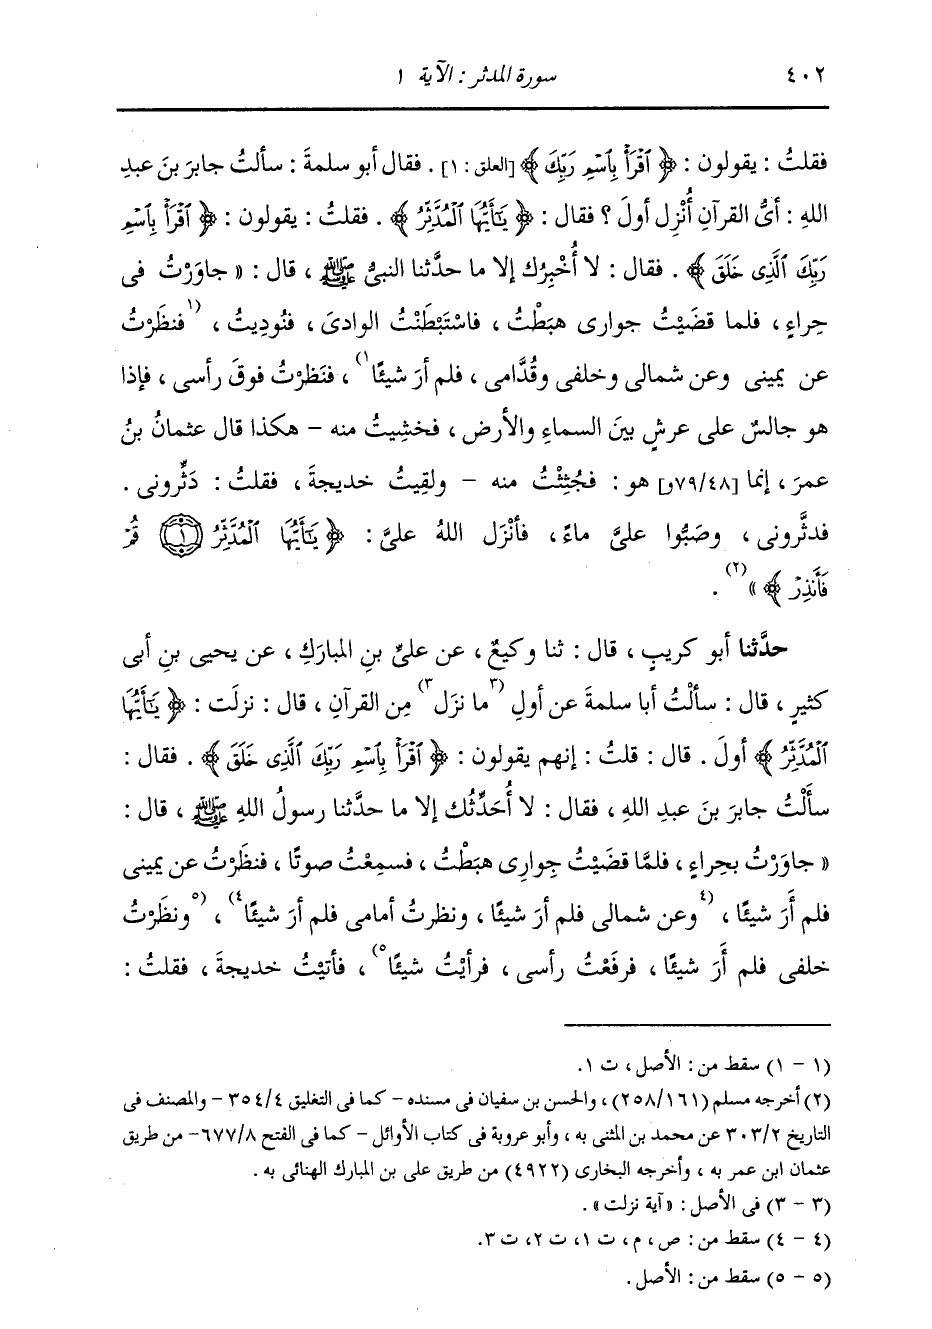 ٤٠٢ سورة المدثر : الآية ١
فقلتُ : يقولون : ﴿ ٱقْرَأْ بِٱسْمِ رَبِّكَ ﴾ [العلق : ١] . فقال أبو سلمةَ : سألتُ جابرَ بنَ عبدِ
اللهِ : أىُّ القرآنِ أُنْزِل أولَ ؟ فقال : ﴿ يَٰٓأَيُّهَا ٱلْمُدَّثِّرُ ﴾ . فقلتُ : يقولون : ﴿ ٱقْرَأْ بِٱسْمِ
رَبِّكَ ٱلَّذِى خَلَقَ ﴾ . فقال : لا أُخْبِرُك إلا ما حدَّثنا النبىُّ ﷺ ، قال : « جاوَرْتُ فى
حِراءٍ ، فلما قضَيْتُ جوارى هبَطْتُ ، فاسْتَبْطَنْتُ الوادىَ ، فنُودِيتُ ، (١فنظَرْتُ
عن يمينى وعن شمالى وخلفى وقُدَّامى ، فلم أرَ شيئًا١) ، فنَظرْتُ فوقَ رأسى ، فإذا
هو جالسٌ على عرشٍ بينَ السماءِ والأرضِ ، فخشِيتُ منه – هكذا قال عثمانُ بنُ
عمرَ ، إنما [٧٩/٤٨و] هو : فجُئِثْتُ منه – ولقِيتُ خديجةَ ، فقلتُ : دَثِّرونى .
فدثَّرونى ، وصَبُّوا علىَّ ماءً ، فأَنْزَل اللهُ علىَّ : ﴿ يَٰٓأَيُّهَا ٱلْمُدَّثِّرُ ۝١ قُمْ
فَأَنذِرْ ﴾ »(٢) .
حدَّثنا أبو كريبٍ ، قال : ثنا وكيعٌ ، عن علىِّ بنِ المباركِ ، عن يحيى بنِ أبى
كثيرٍ ، قال : سألْتُ أبا سلمةَ عن أولِ (٣ما نزَل٣) مِن القرآنِ ، قال : نزلَت : ﴿ يَٰٓأَيُّهَا
ٱلْمُدَّثِّرُ ﴾ أولَ . قال : قلتُ : إنهم يقولون : ﴿ ٱقْرَأْ بِٱسْمِ رَبِّكَ ٱلَّذِى خَلَقَ ﴾ . فقال :
سأَلْتُ جابرَ بنَ عبدِ اللهِ ، فقال : لا أُحَدِّثُك إلا ما حدَّثنا رسولُ اللهِ ﷺ ، قال :
« جاوَرْتُ بحِراءٍ ، فلمَّا قضَيْتُ جوارِى هبَطْتُ ، فسمِعْتُ صوتًا ، فنظَرْتُ عن يمينى
فلم أَرَ شيئًا ، (٤وعن شمالى فلم أرَ شيئًا ، ونظرتُ أمامى فلم أرَ شيئًا٤) ، (٥ونظَرْتُ
خلفى فلم أَرَ شيئًا ، فرفَعْتُ رأسى ، فرأيْتُ شيئًا٥) ، فأتيْتُ خديجةَ ، فقلتُ :
(١ – ١) سقط من : الأصل ، ت ١.
(٢) أخرجه مسلم (٢٥٨/١٦١) ، والحسن بن سفيان فى مسنده – كما فى التغليق ٣٥٤/٤ – والمصنف فى
التاريخ ٣٠٣/٢ عن محمد بن المثنى به ، وأبو عروبة فى كتاب الأوائل – كما فى الفتح ٦٧٧/٨– من طريق
عثمان ابن عمر به ، وأخرجه البخارى (٤٩٢٢) من طريق على بن المبارك الهنائى به .
(٣ – ٣) فى الأصل : «آية نزلت» .
(٤ – ٤) سقط من : ص ، م ، ت ١، ت ٢، ت ٣.
(٥ – ٥) سقط من : الأصل .